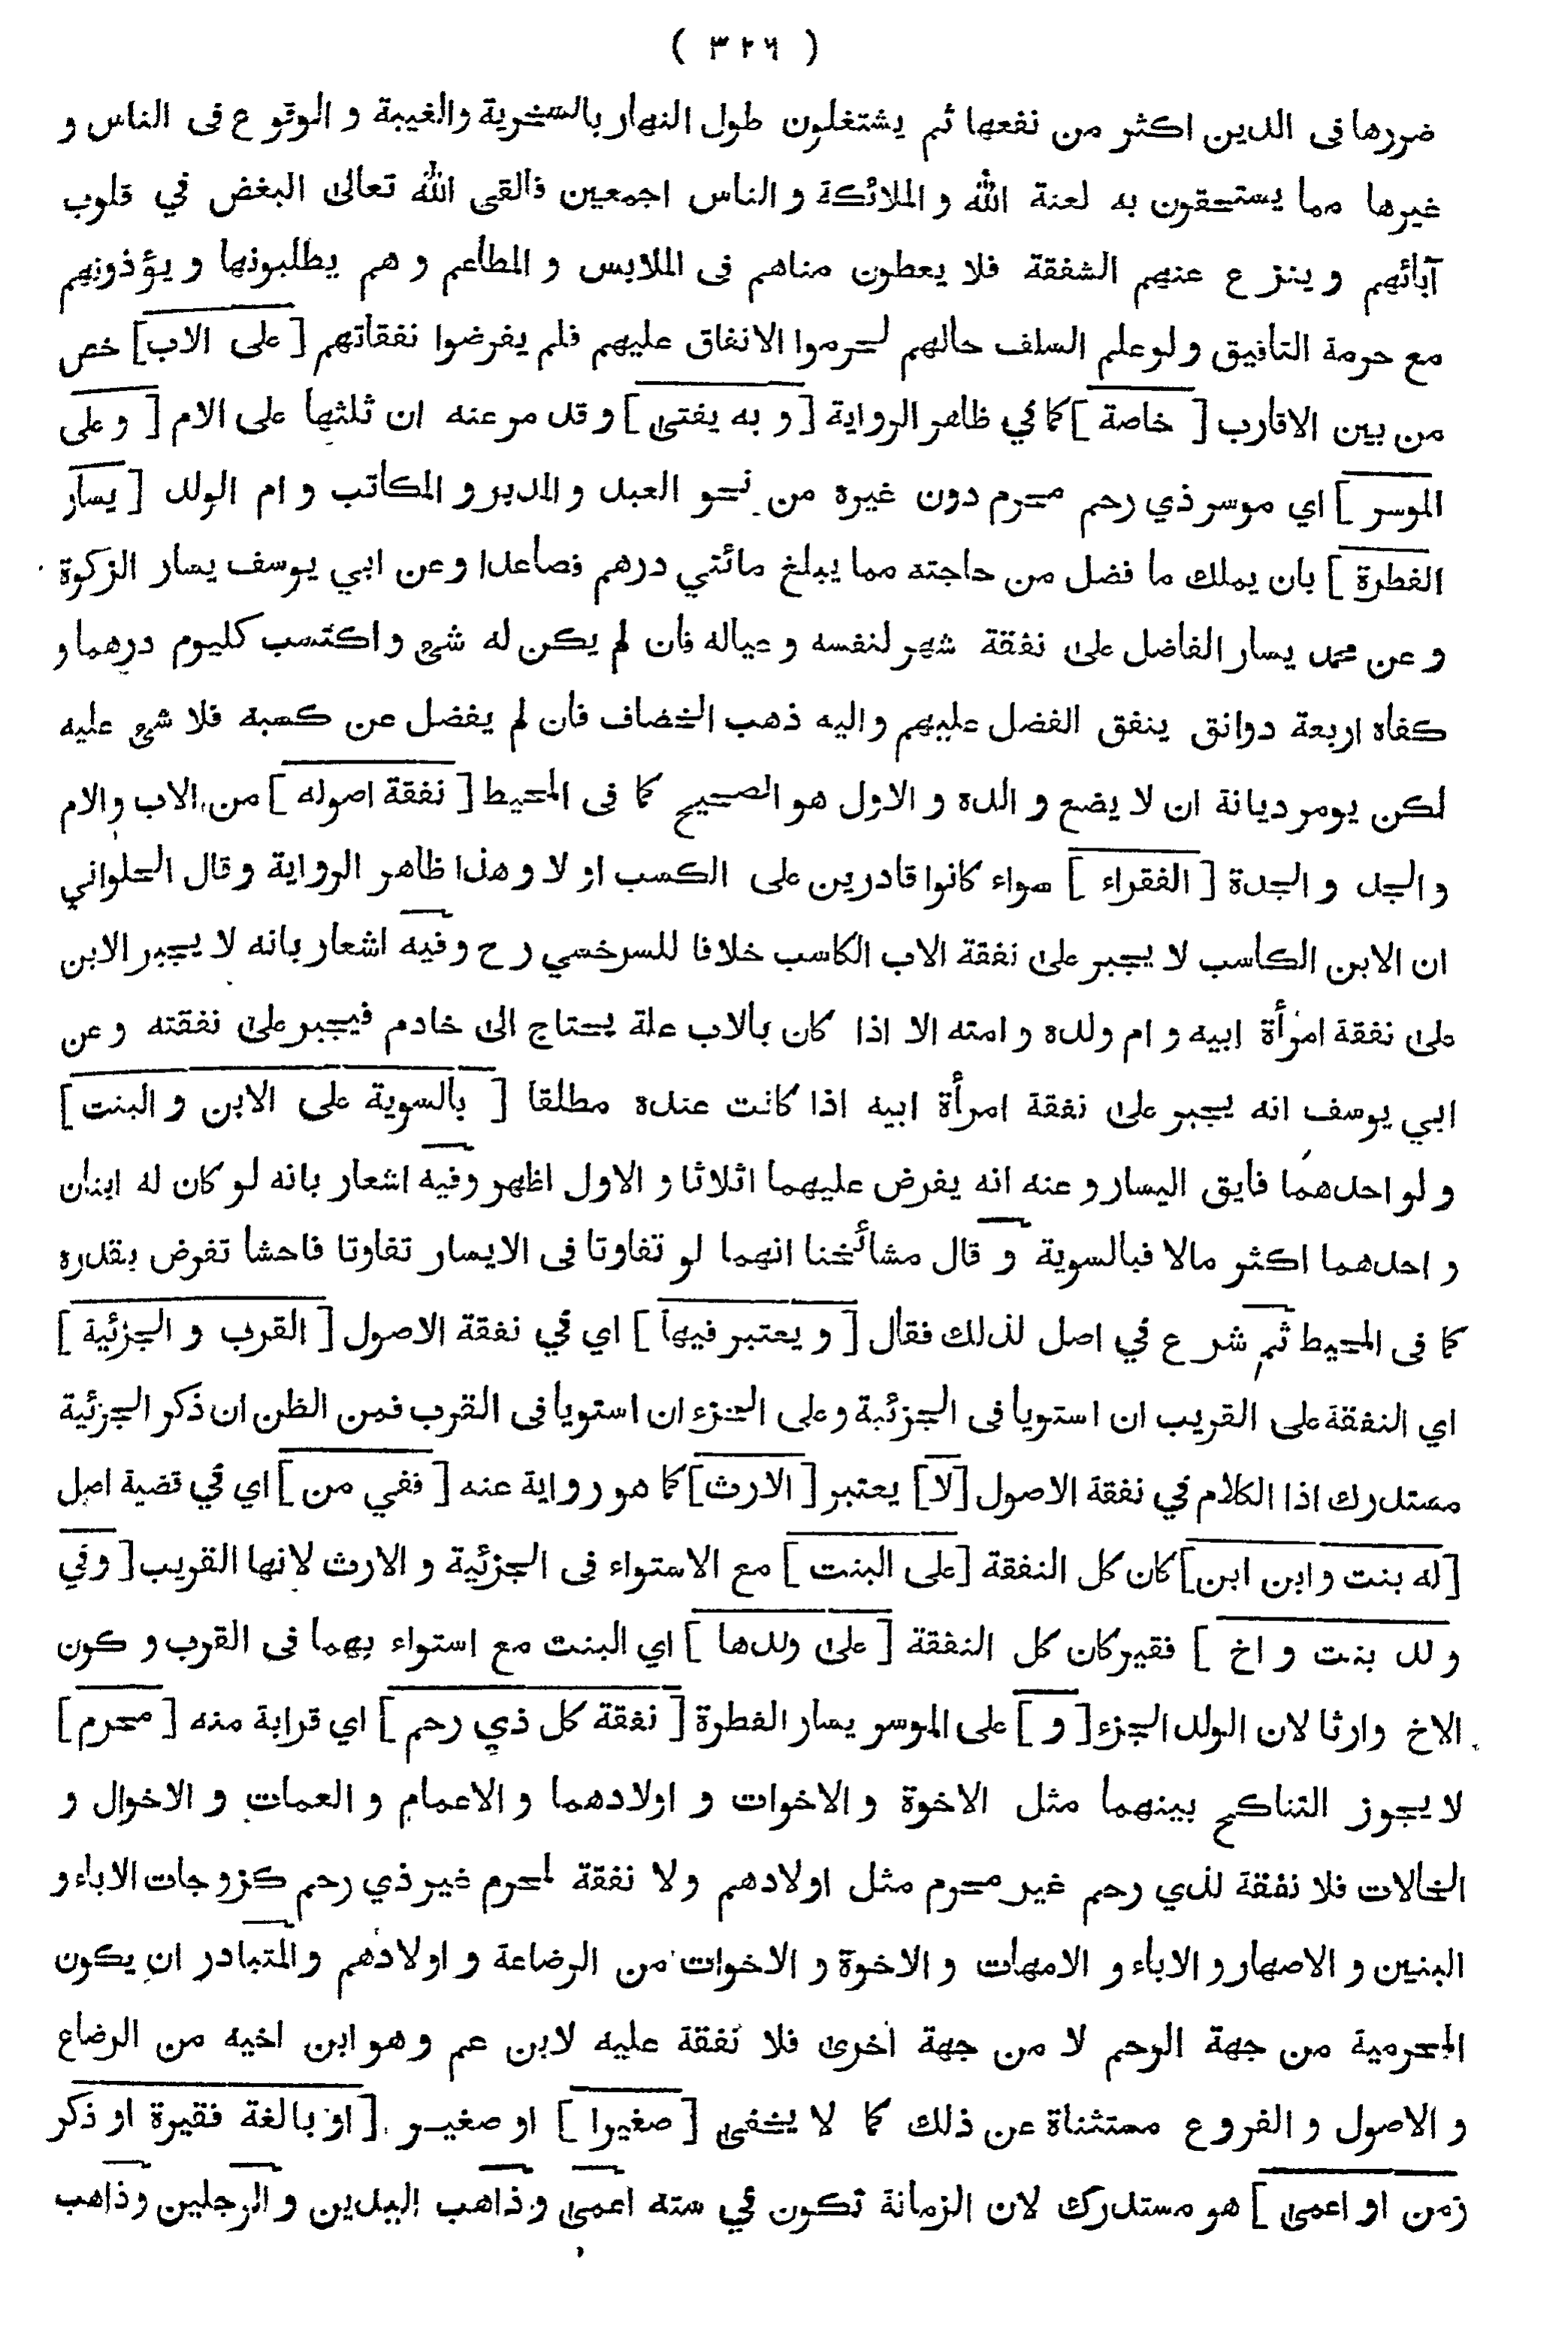 ( ٣٢٦ )
ضررها فى الدين اكثر من نفعها ثم يشتغلون طول النهار بالسخرية والغيبة و الوقوع فى الناس و
غيرها مما يستحقون به لعنة الله و الملائكة و الناس اجمعين فالقى الله تعالى البغض في قلوب
آبائهم و ينزع عنهم الشفقة فلا يعطون مناهم فى الملابس و المطاعم و هم يطلبونها و يؤذونهم
مع حرمة التافيق و لو علم السلف حالهم لحرموا الانفاق عليهم فلم يفرضوا نفقاتهم [على الاب] خص
من بين الاقارب [ خاصة ] كما في ظاهر الرواية [و به يفتى] و قد مر عنه ان ثلثها على الام [ و على
الموسر ] اي موسر ذي رحم محرم دون غيره من نحو العبد و المدبر و المكاتب و ام الولد [ يسار
الفطرة ] بان يملك ما فضل من حاجته مما يبلغ مائتي درهم فصاعدا و عن ابي يوسف يسار الزكوة
و عن محمد يسار الفاضل على نفقة شهر لنفسه و عياله فان لم يكن له شئ و اكتسب كليوم درهما و
كفاه اربعة دوانق ينفق الفضل عليهم و اليه ذهب الخصاف فان لم يفضل عن كسبه فلا شئ عليه
لكن يومر ديانة ان لا يضع و الده و الاول هو الصحيح كما فى المحيط [ نفقة اصوله ] من الاب و الام
و الجد و الجدة [ الفقراء ] سواء كانوا قادرين على الكسب او لا و هذا ظاهر الرواية و قال الحلواني
ان الابن الكاسب لا يجبر على نفقة الاب الكاسب خلافا للسرخسي رح و فيه اشعار بانه لا يجبر الابن
على نفقة امرأة ابيه و ام ولده و امته الا اذا كان بالاب علة يحتاج الى خادم فيجبر على نفقته و عن
ابي يوسف انه يجبر على نفقة امرأة ابيه اذا كانت عنده مطلقا [ بالسوية على الابن و البنت ]
و لو احدهما فايق اليسار و عنه انه يفرض عليهما اثلاثا و الاول اظهر و فيه اشعار بانه لو كان له ابنان
و احدهما اكثر مالا فبالسوية و قال مشائخنا انهما لو تفاوتا فى الايسار تفاوتا فاحشا تفرض بقدره
كما فى المحيط ثم شرع في اصل لذلك فقال [ و يعتبر فيها ] اي في نفقة الاصول [ القرب و الجزئية ]
اي النفقة على القريب ان استويا فى الجزئية و على الجزء ان استويا فى القرب فمن الظن ان ذكر الجزئية
مستدرك اذا الكلام في نفقة الاصول [لا] يعتبر [ الارث] كما هو رواية عنه [ ففي من ] اي في قضية اصل
[له بنت و ابن ابن] كان كل النفقة [على البنت ] مع الاستواء فى الجزئية و الارث لانها القريب [ وفي
و لد بنت و اخ ] فقير كان كل النفقة [ على ولدها ] اي البنت مع استواء بهما فى القرب و كون
الاخ وارثا لان الولد الجزء [ و ] على الموسر يسار الفطرة [ نفقة كل ذي رحم ] اي قرابة منه [ محرم ]
لا يجوز التناكح بينهما مثل الاخوة و الاخوات و اولادهما و الاعمام و العمات و الاخوال و
الخالات فلا نفقة لذي رحم غير محرم مثل اولادهم و لا نفقة لمحرم غير ذي رحم كزوجات الاباء و
البنين و الاصهار و الاباء و الامهات و الاخوة و الاخوات من الرضاعة و اولادهم و المتبادر ان يكون
المحرمية من جهة الرحم لا من جهة اخرى فلا نفقة عليه لابن عم و هو ابن اخيه من الرضاع
و الاصول و الفروع مستثناة عن ذلك كما لا يخفى [ صغيرا ] او صغير [ او بالغة فقيرة او ذكر
زمن او اعمى ] هو مستدرك لان الزمانة تكون في سته اعمى و ذاهب اليدين و الرجلين و ذاهب